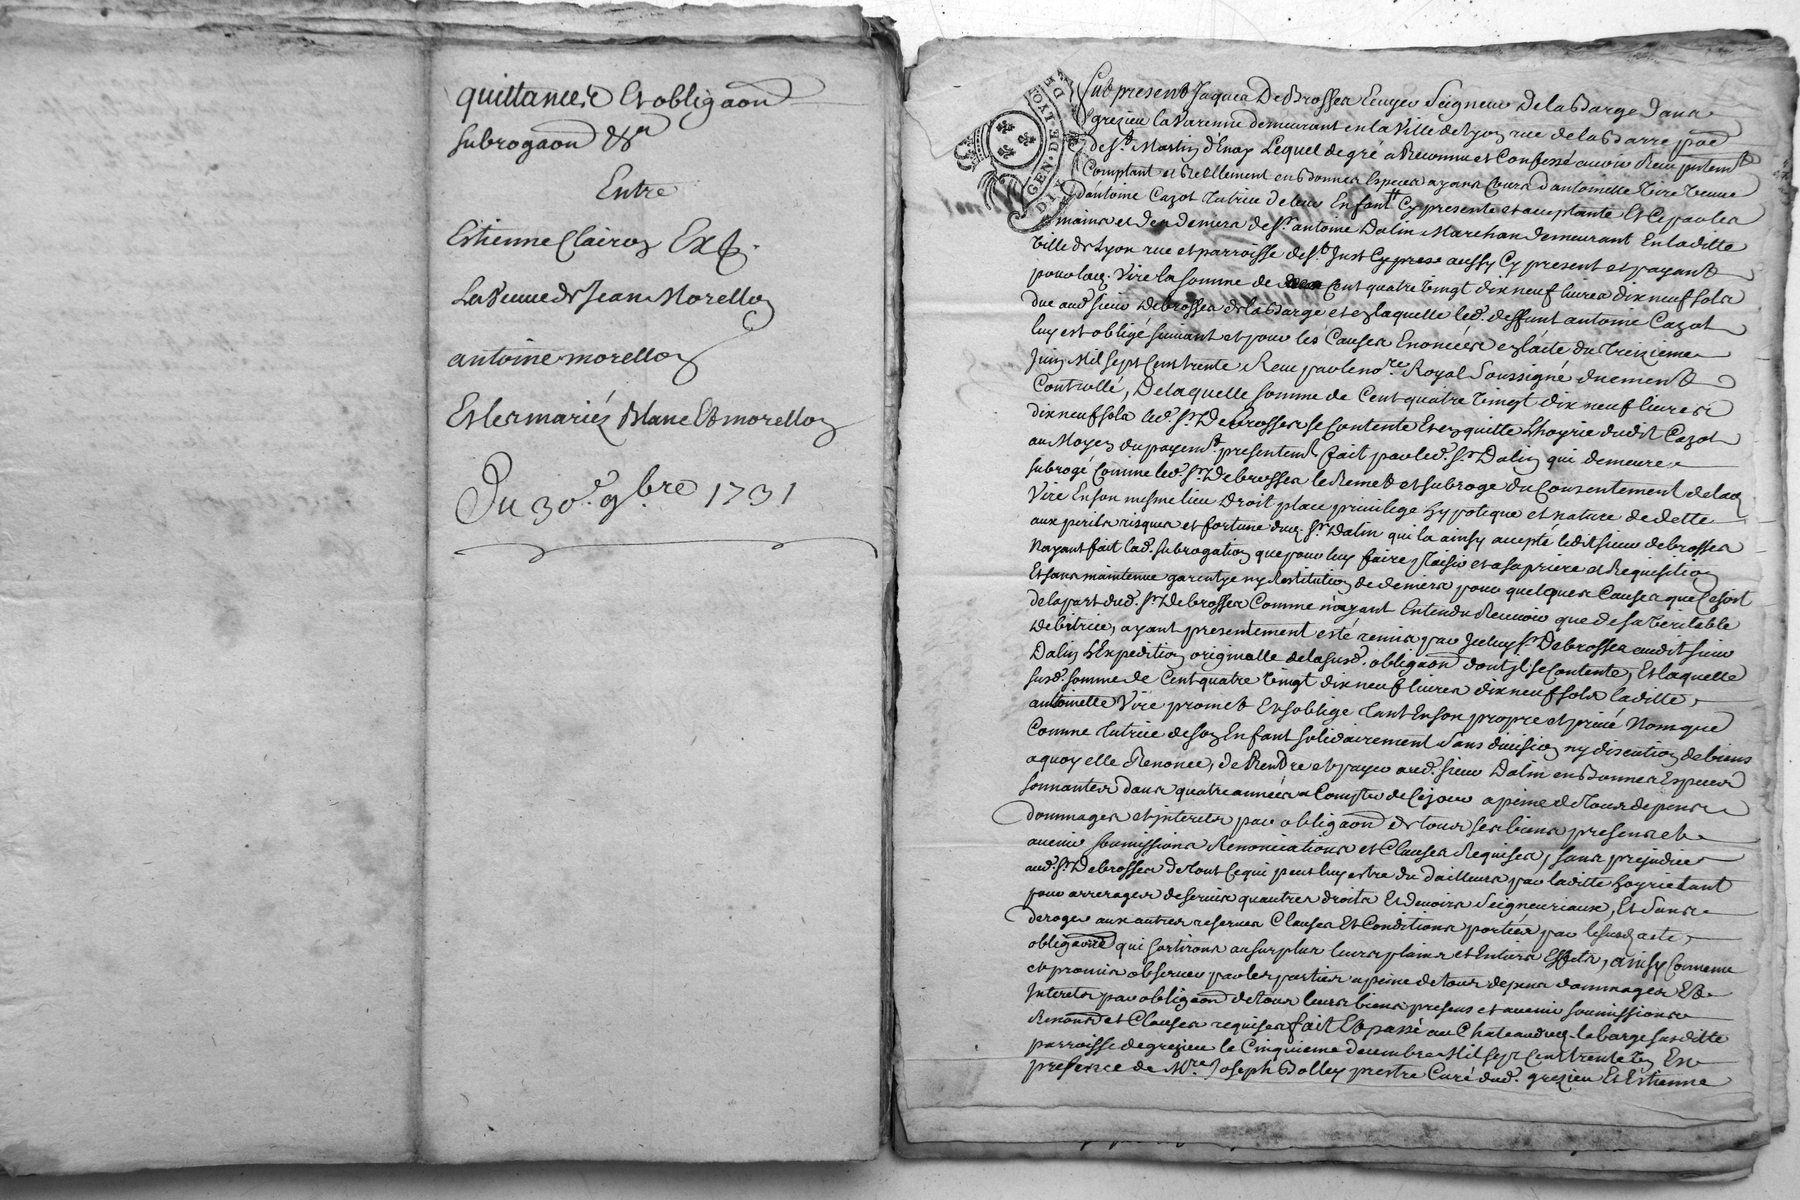 quittance Et obligaon
subrogaon &a
Entre
Estienne Clairon Ex
La Veuve de Jean Morellon
antoine morellon
Et les mariéz Blanc Et morellon
Du 30e 9bre 1731
GEN. DE LYON
Fut present Jaques De Brosses Ecuyer Seigneur De la Barge dans
grezieu la Varenne demeurant en la Ville de Lyon rue de la Barre paé
de St Martin d'Enay Lequel de gré a Reconnu et Confessé avoir Reçu
Comptant et Réellement en Bonnes Especes ayans Cours d'antoinette Vire Veuve
d'antoine Cazot Tutrice de leur Enfant Cy presente et acceptante Et ce par les
mains et des deniers de Sr antoine Dalin Marchan demeurant En laditte
Ville de Lyon rue et parroisse de St Just Cy aussy Cy present et payant
pour lad. Vire la somme de Cent quatre Vingt dix neuf livres dix neuf sols
due aud. sieur De brosses de la Barge et en laquelle led. deffunt antoine Cazot
luy est obligé suivant et pour les Causes Enoncées en l'acte du Treizieme
Juin Mil Sept Cent trente Reçu par le nore Royal Soussigné duement
Controllé, De laquelle somme de Cent quatre Vingt dix neuf livres
dix neuf sols led. Sr. De brosses se Contente Et en quitte L'hoyrie dudit Cazot
au Moyen du payemt presentemt fait par led. Sr Dalin qui demeure
subrogé Comme led. Sr De brosses le Remet et subroge du Consentement de lad.
Vire En son mesme lieu Droit place privilege hypoteque et nature de dette
aux perils risques et fortune dud. Sr Dalin qui la ainsy accepté ledit sieur de brosses
Nayant fait lad. subrogation que pour luy faire plaisir et a sa priere et Requisition
Et sans maintenue garentye ny Restitution de deniers pour quelques Causes que ce soit
de la part dud. Sr De brosses Comme n'ayant Entendu Recevoir que de sa Veritable
Debitrice, ayant presentement esté remis par Iceluy Sr De brosses audit sieur
Dalin L'Expedition originalle de la susd. obligaon dont il se Contente, Et laquelle
susd. somme de Cent quatre Vingt dix neuf livres dix neuf sols laditte
antoinette Vire promet Et soblige tant En son propre et privé Nom que
Comme Tutrice de son Enfant solidairement sans division ny discution de biens
a quoy elle Renonce, de Rendre et payer aud. sieur Dalin en Bonnes Especes
sonnantes dans quatre années a Compter de Cejour a peine de tous depens
dommages et interets par obligaon de tous ses biens presens et
avenir soumissions Renonciations et Clauses Requises, sans prejudice
aud. Sr De brosses de tout Cequi peut luy estre du d'ailleurs par laditte hoyrie tant
pour arrerages de servis quautres droits Et devoirs Seigneuriaux, Et Sans
deroger aux autres reserves Clauses Et Conditions portées par le susd. acte
obligaoire qui sortirons au surplus leurs plains et Entiers Effets, ainsy Convenu
et promis observer par les parties a peine de tous depens dommages Et
Interets par obligaon de tous leurs biens presens et avenir soumissions
Renons et Clauses requises fait Et passé au Chateau dud. la barge susditte
parroisse de grezieu le Cinquieme decembre Mil Sept Cent trente Un En
presence de Mre Joseph Bolley prestre Curé dud. grezieu Et Estienne